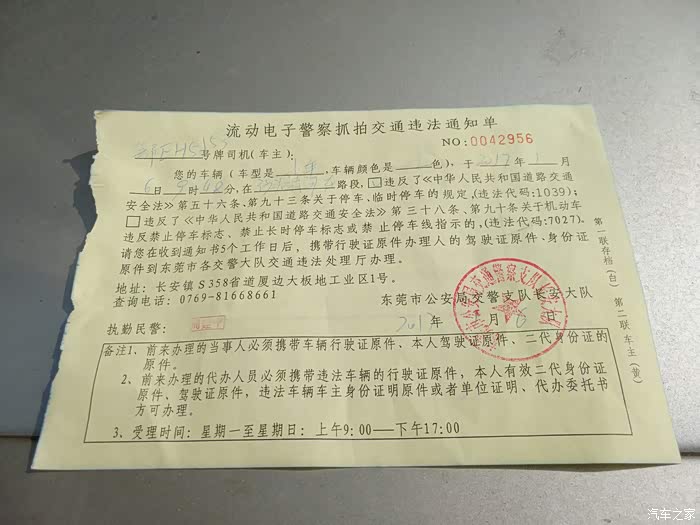 流动电子警察抓拍交通违法通知单
NO:0042956
号牌司机(车主):
您的车辆(车型是 ,车辆颜色是 色),于 2017年1月
6日9时48分,在 路段,☑违反了《中华人民共和国道路交通
安全法》第五十六条、第九十三条关于停车、临时停车的规定,(违法代码:1039);
□违反了《中华人民共和国道路交通安全法》第三十八条、第九十条关于机动车
违反禁止停车标志、禁止长时停车标志或禁止停车线指示的,(违法代码:7027)。
请您在收到通知书5个工作日后,携带行驶证原件办理人的驾驶证原件、身份证
原件到东莞市各交警大队交通违法处理厅办理。
地址:长安镇S358省道厦边大板地工业区1号。
查询电话:0769-81668661
东莞市公安局交警支队长安大队
执勤民警:
年 月 日
备注1、前来办理的当事人必须携带车辆行驶证原件、本人驾驶证原件、二代身份证的
原件。
2、前来办理的代办人员必须携带违法车辆的行驶证原件,本人有效二代身份证
原件、驾驶证原件,违法车辆车主身份证明原件或者单位证明、代办委托书
方可办理。
3、受理时间:星期一至星期日:上午9:00——下午17:00
第一联存档(白) 第二联车主(黄)
汽车之家